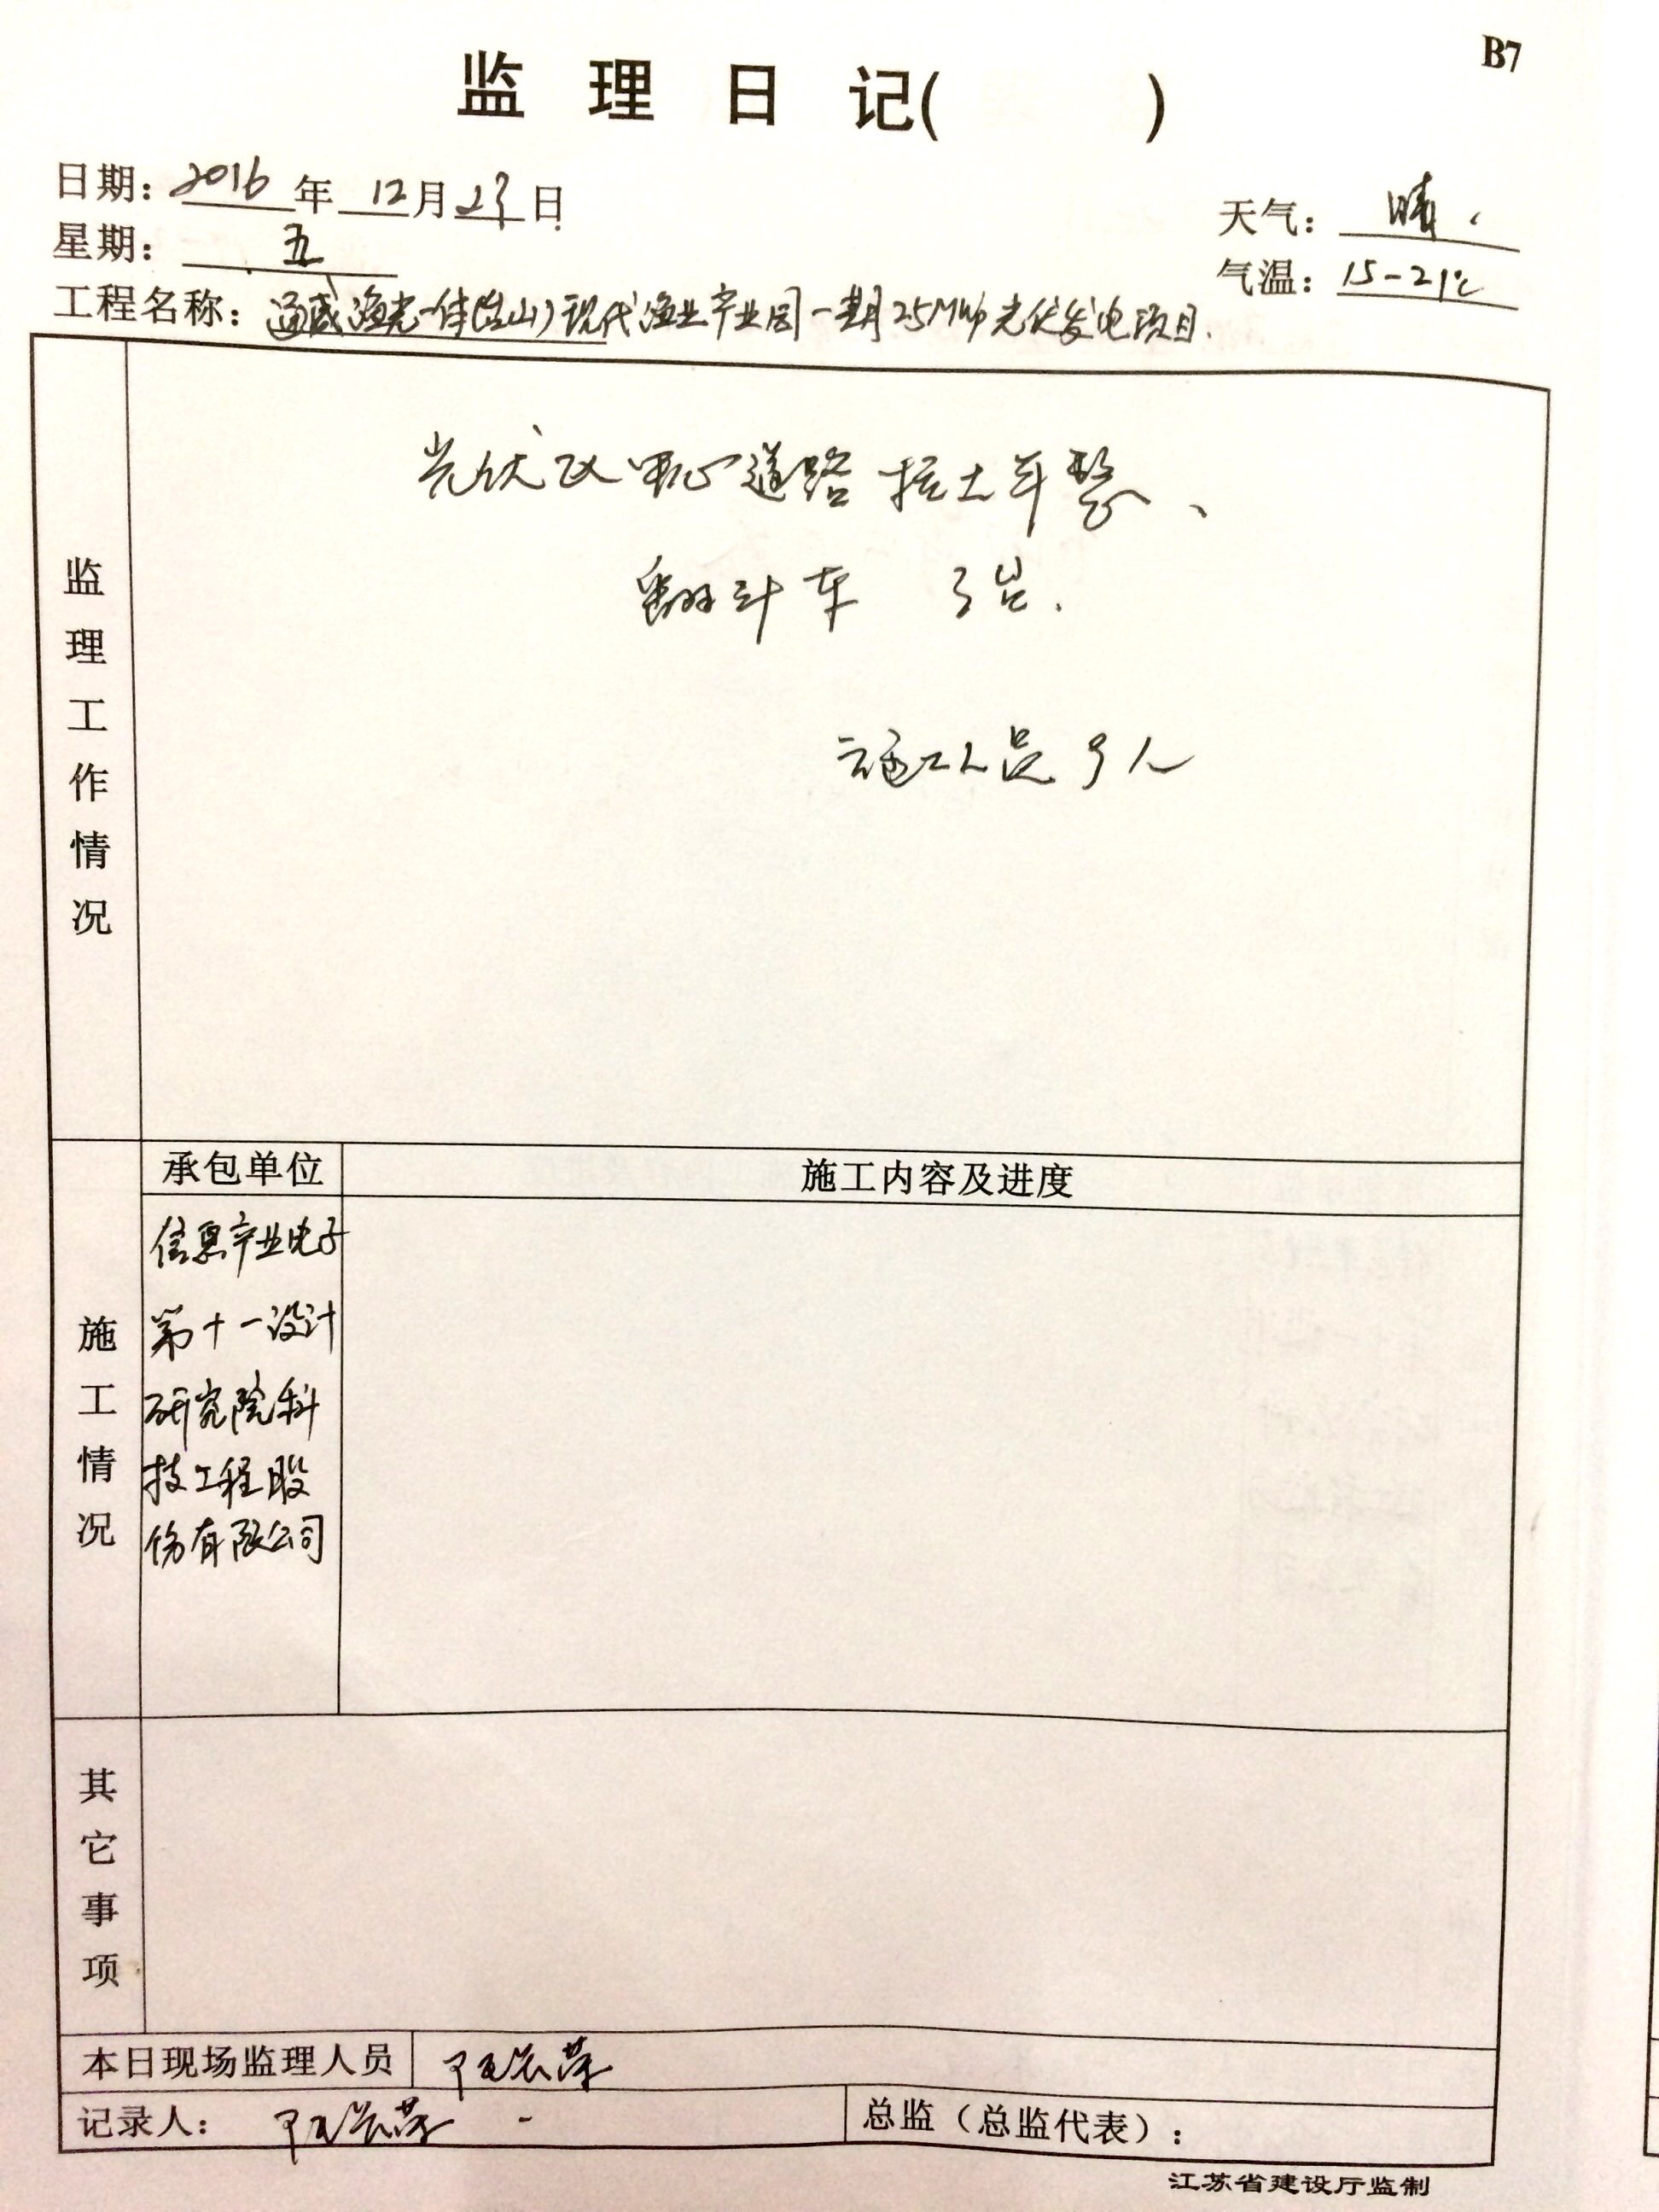 B7
监理日记( )
日期: 2016 年 12 月 23 日
天气: 晴
星期: 五
气温: 15-21℃
工程名称: 通威渔光一体(台山)现代渔业产业园一期25MWp光伏发电项目.
监理工作情况
光伏区中心道路拉土平整、
翻斗车 3台.
施工人员 9人
施工情况
承包单位
施工内容及进度
信息产业电子
第十一设计
研究院科
技工程股
份有限公司
其它事项
本日现场监理人员
记录人:
总监(总监代表):
江苏省建设厅监制